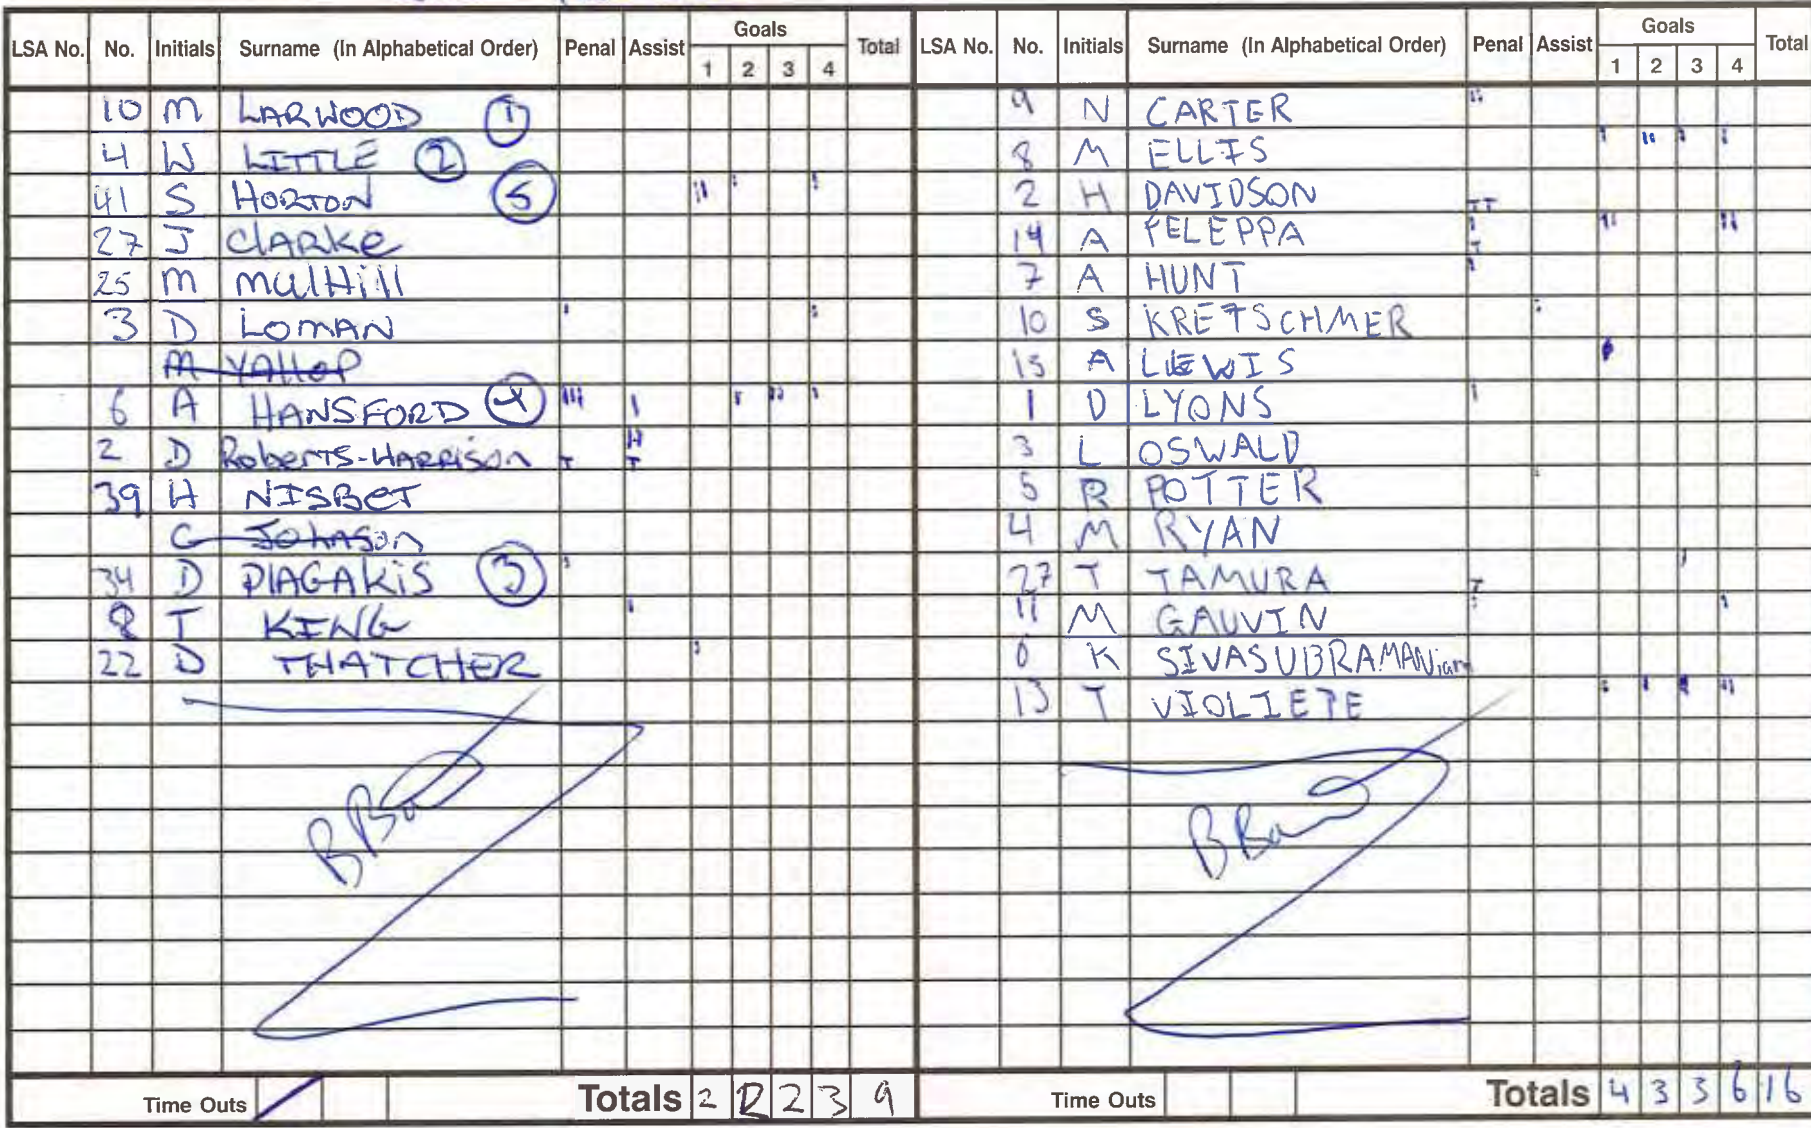 LSA No. No. Initials Surname (In Alphabetical Order) Penal Assist Goals 1 2 3 4 Total
10 M LARWOOD 1
4 W LITTLE 2
41 S HORTON 5
27 J CLARKe
25 M MulHill
3 D LOMAN
M YAllOP
6 A HANSFORD 4
2 D RobertS-HARRISON T T
39 H NISBeT
C JOhnSon
34 D PIAGAKiS 3
8 T KING
22 D THATCHER
Time Outs Totals 2 2 2 3 9
LSA No. No. Initials Surname (In Alphabetical Order) Penal Assist Goals 1 2 3 4 Total
9 N CARTER
8 M ELLIS
2 H DAVIDSON TT
14 A FELEPPA T
7 A HUNT
10 S KRETSCHMER
15 A LEWIS
1 D LYONS
3 L OSWALD
5 R POTTER
4 M RYAN
27 T TAMURA T
11 M GAUVIN
6 K SIVASUBRAMANiam
13 T VIOLIETE
Time Outs Totals 4 3 3 6 16